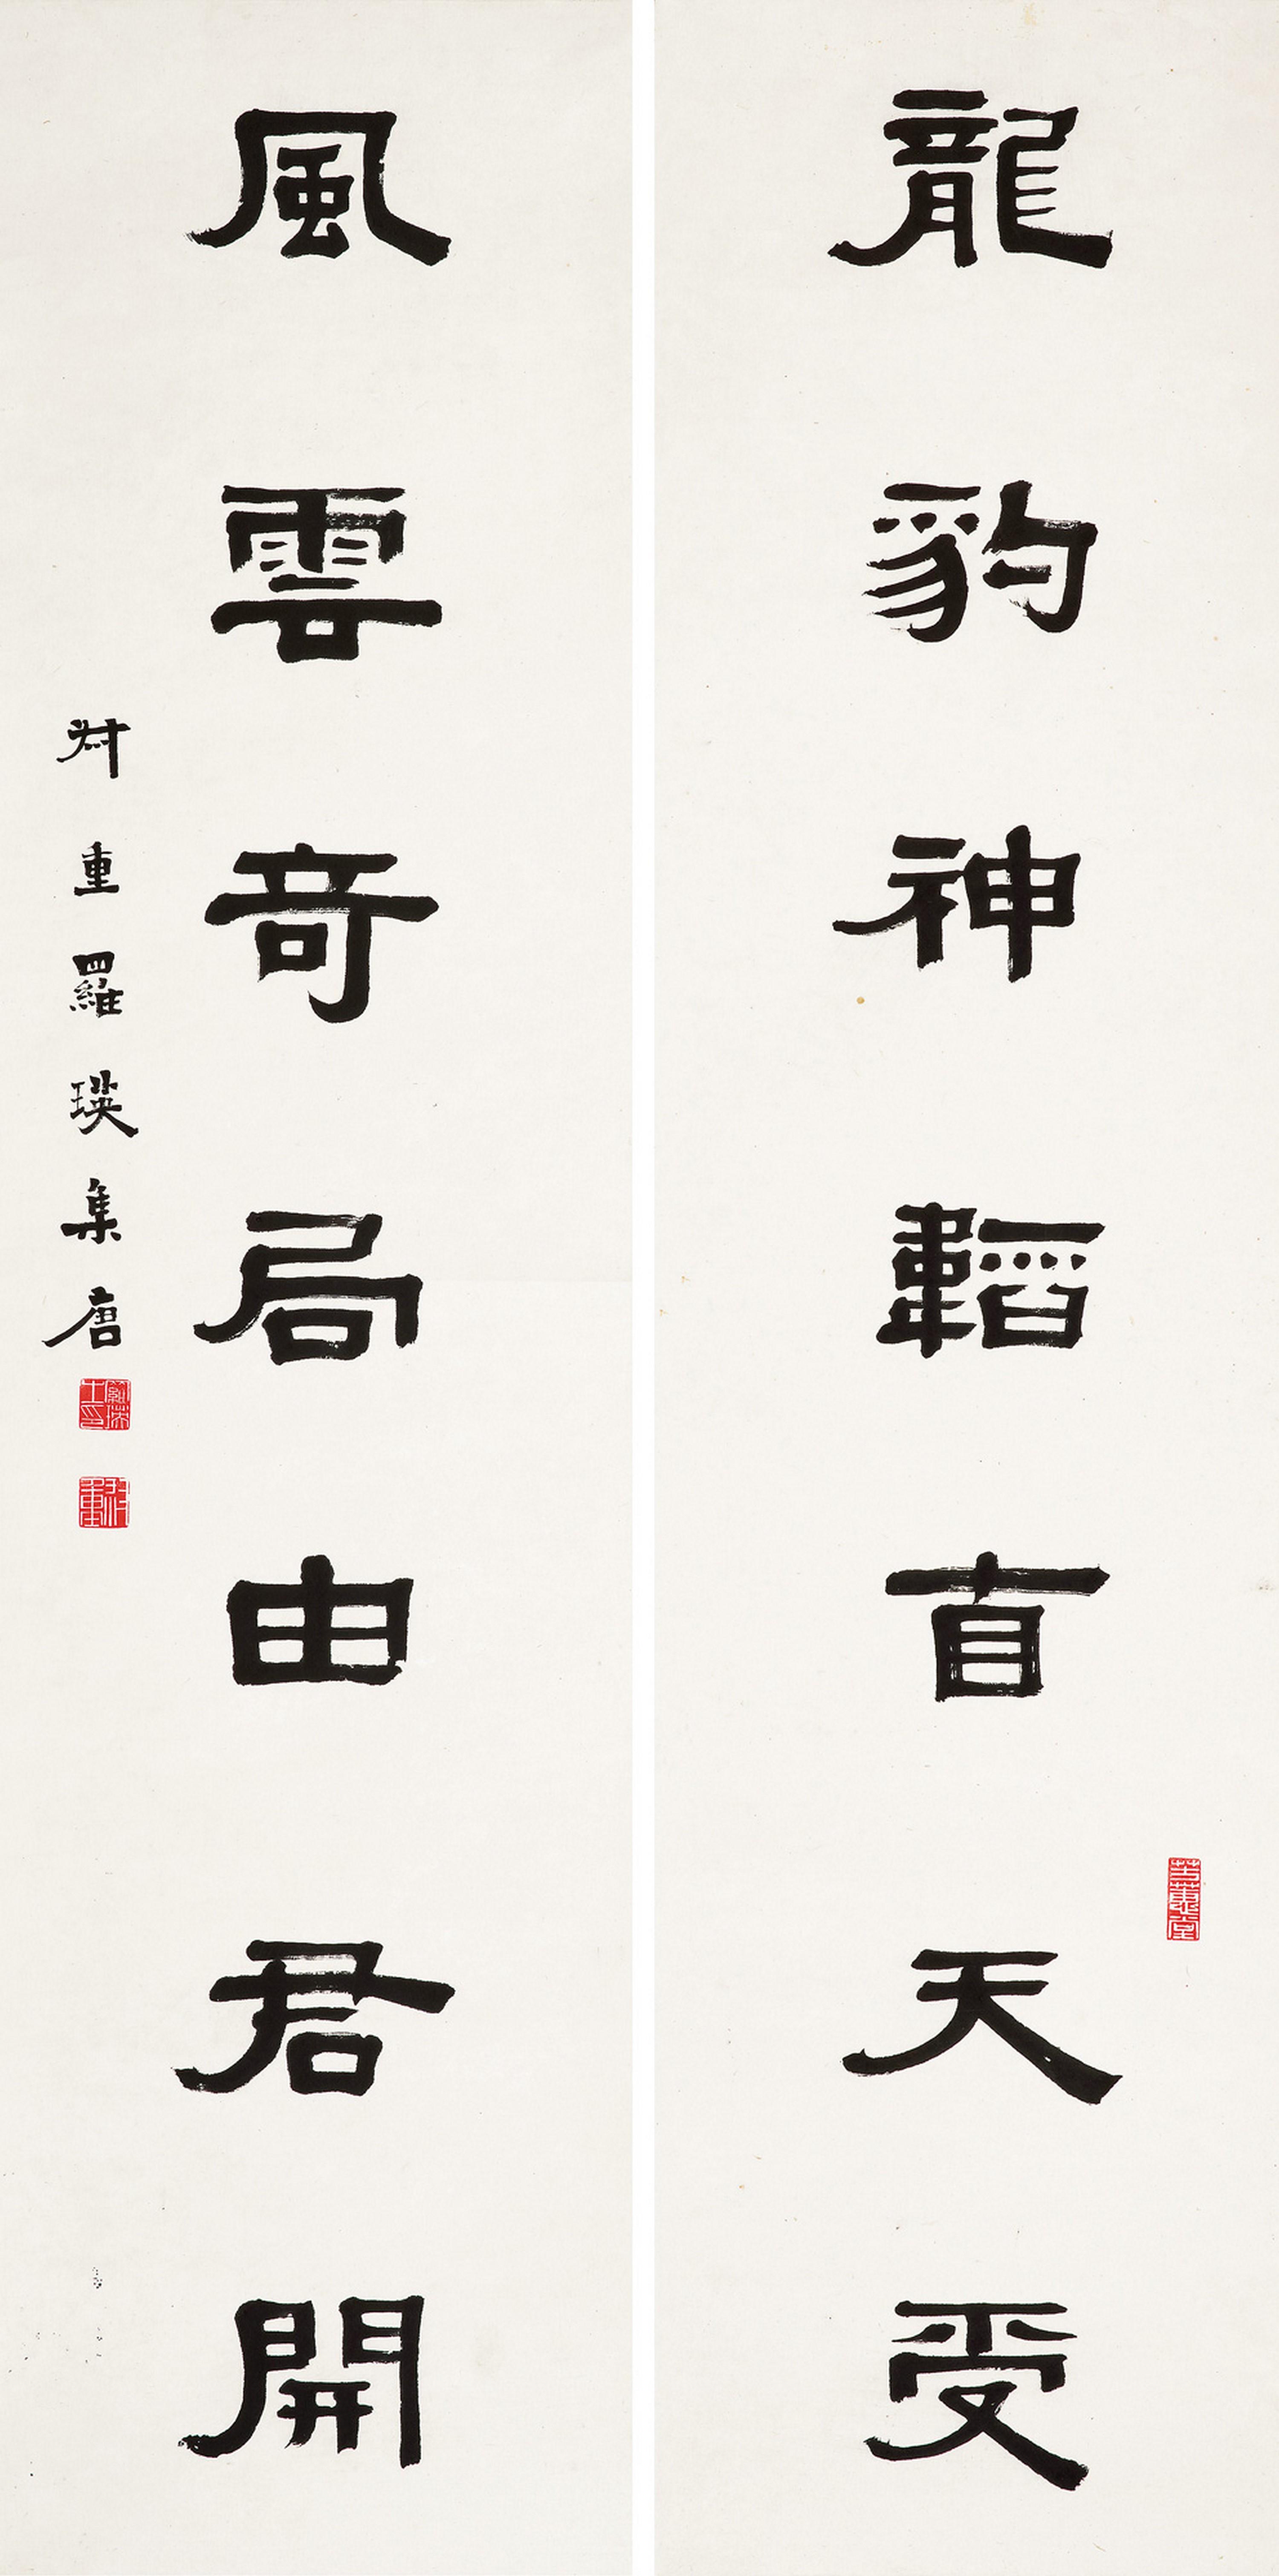 龍豹神韜直天受
風雲奇局由君開
叔重羅瑛集唐